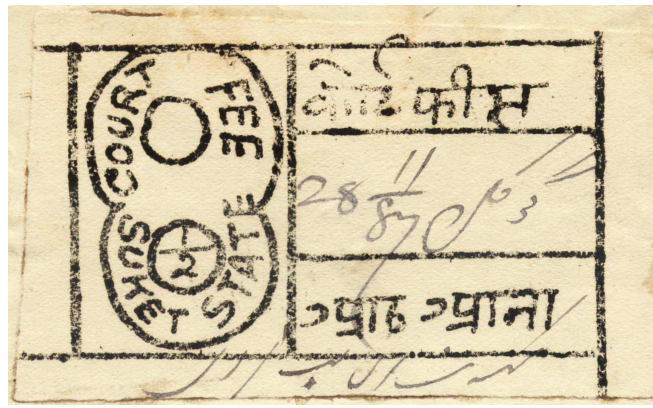 COURT FEE
SUKET STATE
1/2
कोर्ट फीस
28 11/87
आठ आना